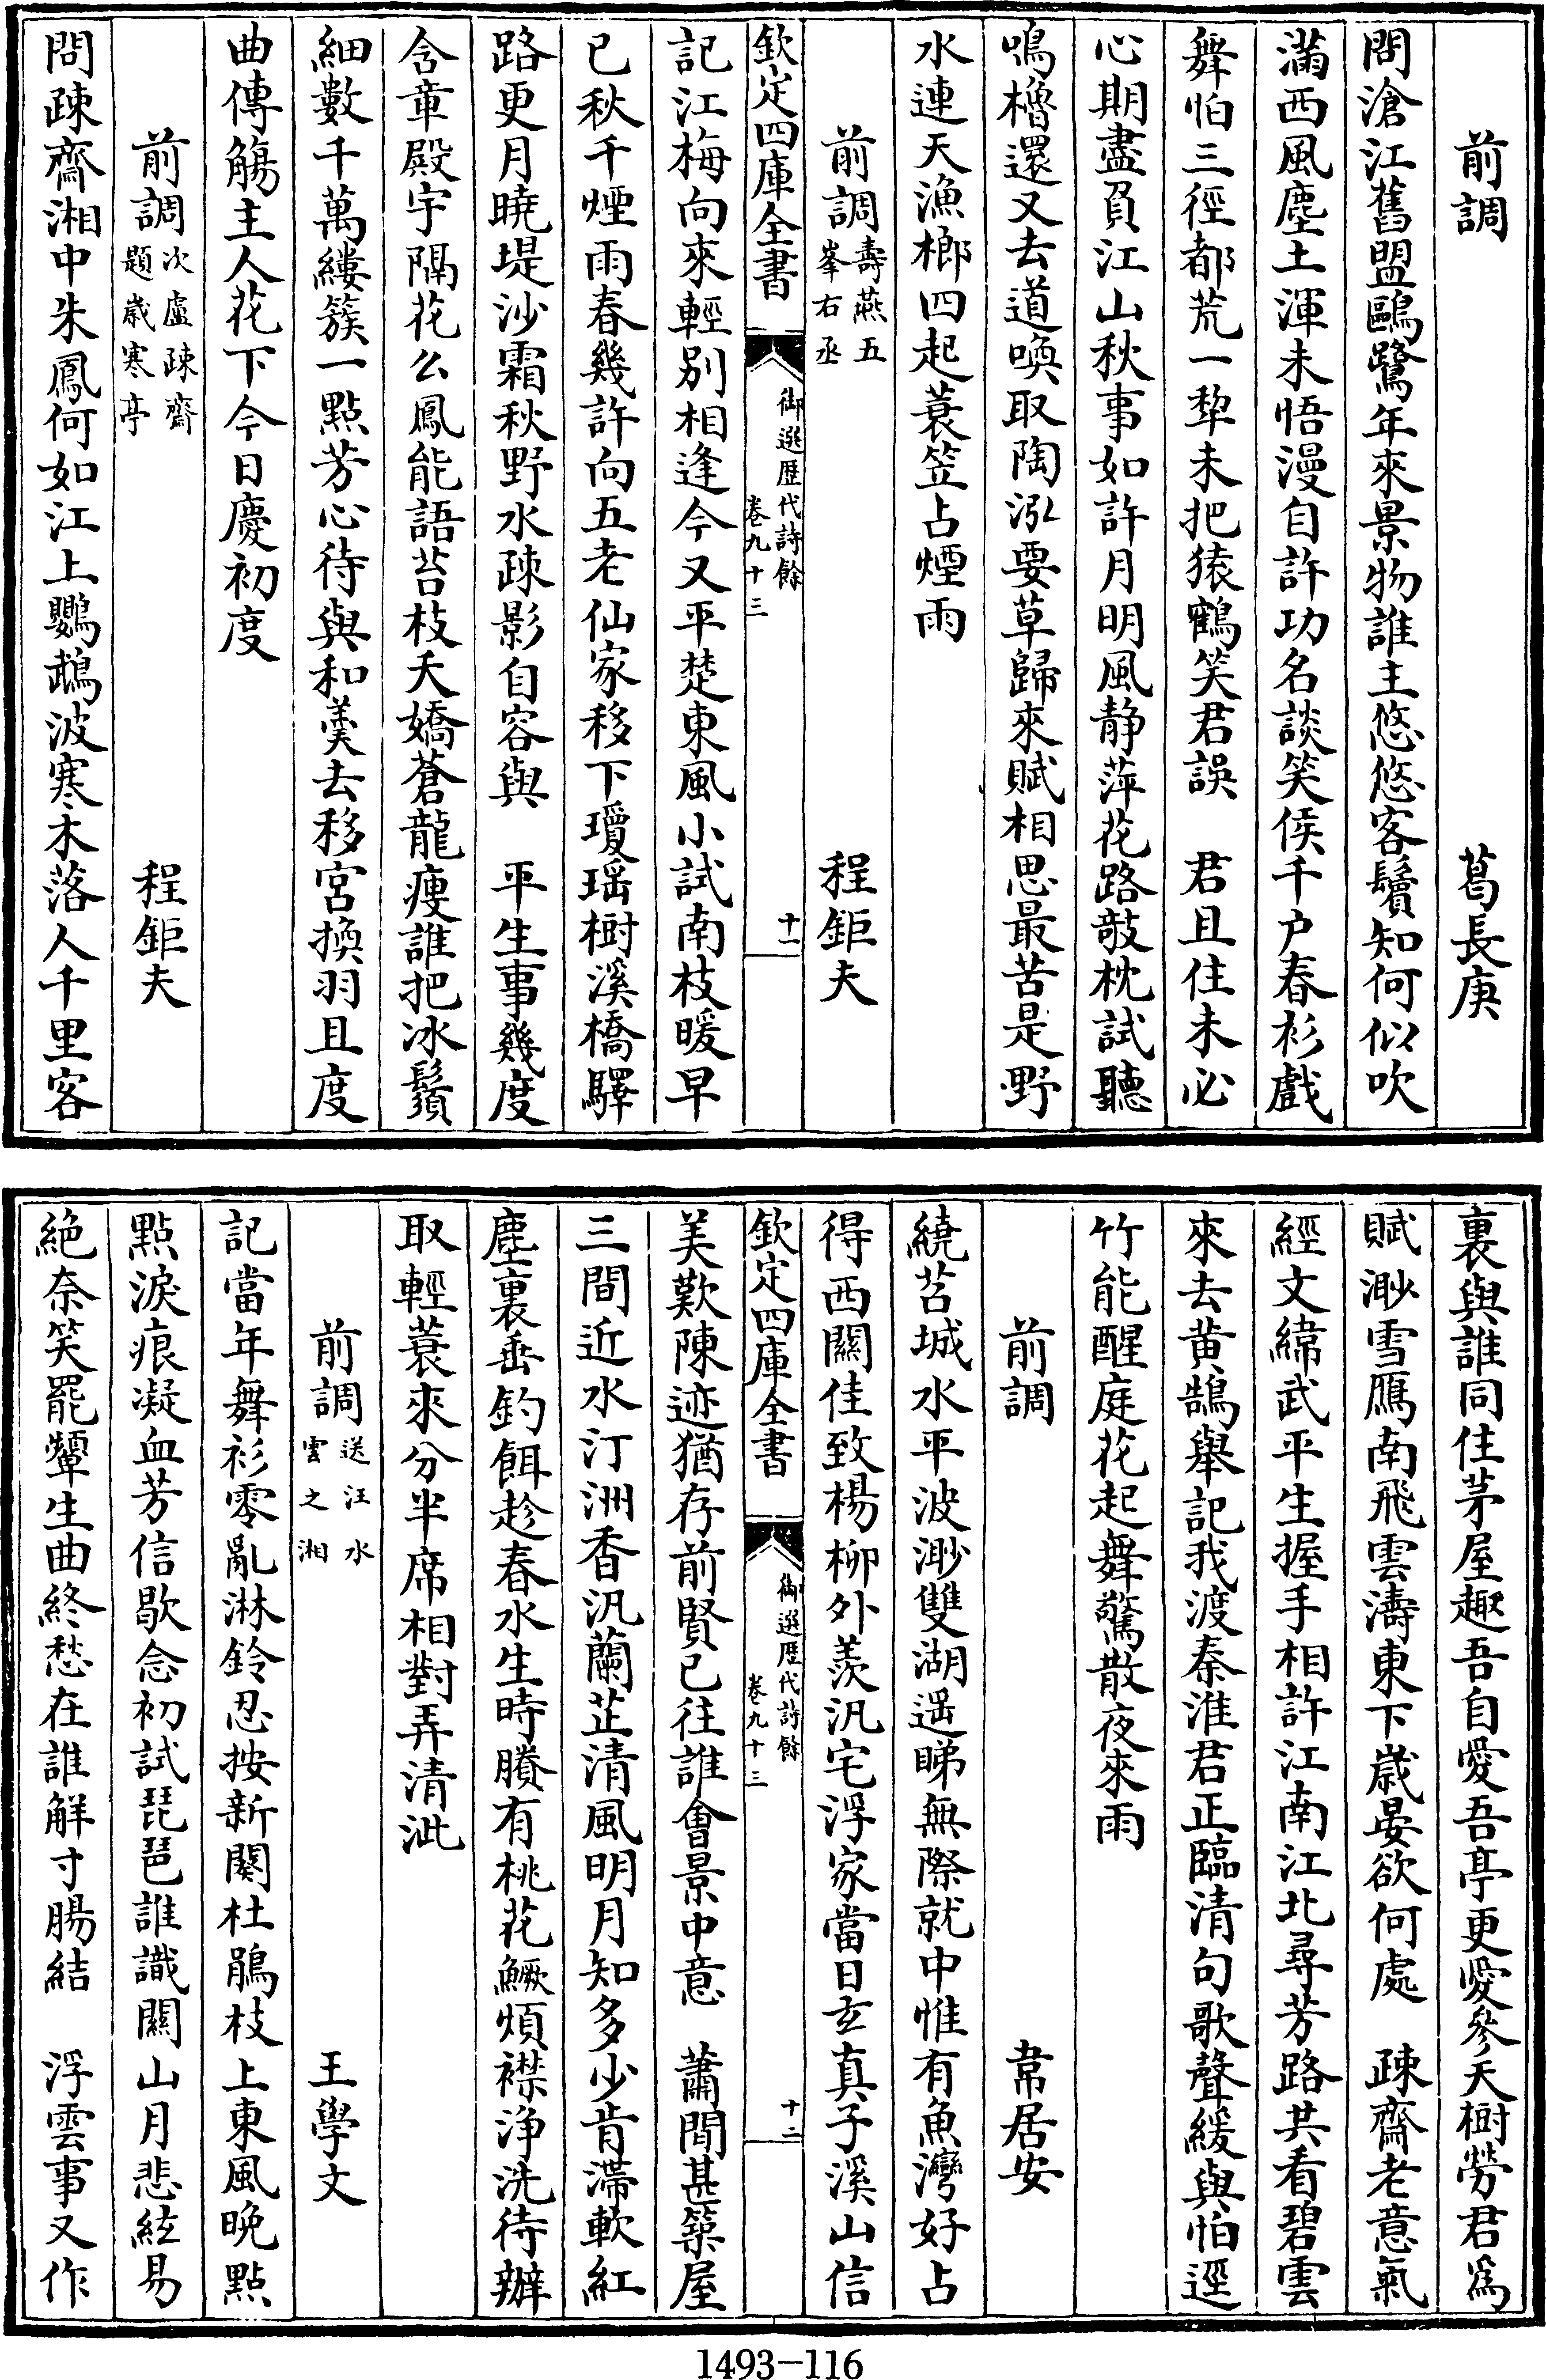 前調　葛長庚
問滄江舊盟鷗鷺年來景物誰主悠悠客鬢知何似吹
滿西風塵土渾未悟漫自許功名談笑侯千户春衫戲
舞怕三徑都荒一犂未把猿鶴笑君誤　君且住未必
心期盡負江山秋事如許月明風静萍花路敧枕試聽
鳴櫓還又去道喚取陶泓要草歸來賦相思最苦是野
水連天漁榔四起蓑笠占煙雨
前調壽燕五峯右丞　程鉅夫
欽定四庫全書　御選歷代詩餘卷九十三　十一
記江梅向來輕别相逢今又平楚東風小試南枝暖早
已秋千煙雨春幾許向五老仙家移下瓊瑶樹溪橋驛
路更月曉堤沙霜秋野水疎影自容與　平生事幾度
含章殿宇隔花么鳳能語苔枝夭嬌蒼龍瘦誰把冰鬚
細數千萬縷簇一點芳心待與和羹去移宮換羽且度
曲傳觴主人花下今日慶初度
前調次盧疎齋題歲寒亭　程鉅夫
問疎齋湘中朱鳳何如江上鸚鵡波寒木落人千里客
裏與誰同住茅屋趣吾自愛吾亭更愛參天樹勞君爲
賦渺雪鴈南飛雲濤東下歲晏欲何處　疎齋老意氣
經文緯武平生握手相許江南江北尋芳路共看碧雲
來去黄鵠舉記我渡秦淮君正臨清句歌聲緩與怕逕
竹能醒庭花起舞驚散夜來雨
前調　韋居安
繞苕城水平波渺雙湖遥睇無際就中惟有魚灣好占
得西關佳致楊柳外羨汎宅浮家當日玄真子溪山信
欽定四庫全書　御選歷代詩餘卷九十三　十二
美歎陳迹猶存前賢已往誰會景中意　蕭閒甚築屋
三間近水汀洲香汎蘭芷清風明月知多少肯滯軟紅
塵裏垂釣餌趁春水生時賸有桃花鱖煩襟浄洗待辦
取輕蓑來分半席相對弄清泚
前調送汪水雲之湘　王學文
記當年舞衫零亂淋鈴忍按新闋杜鵑枝上東風晚點
點淚痕凝血芳信歇念初試琵琶誰識關山月悲絃易
絶奈笑罷顰生曲終愁在誰解寸腸結　浮雲事又作
1493-116